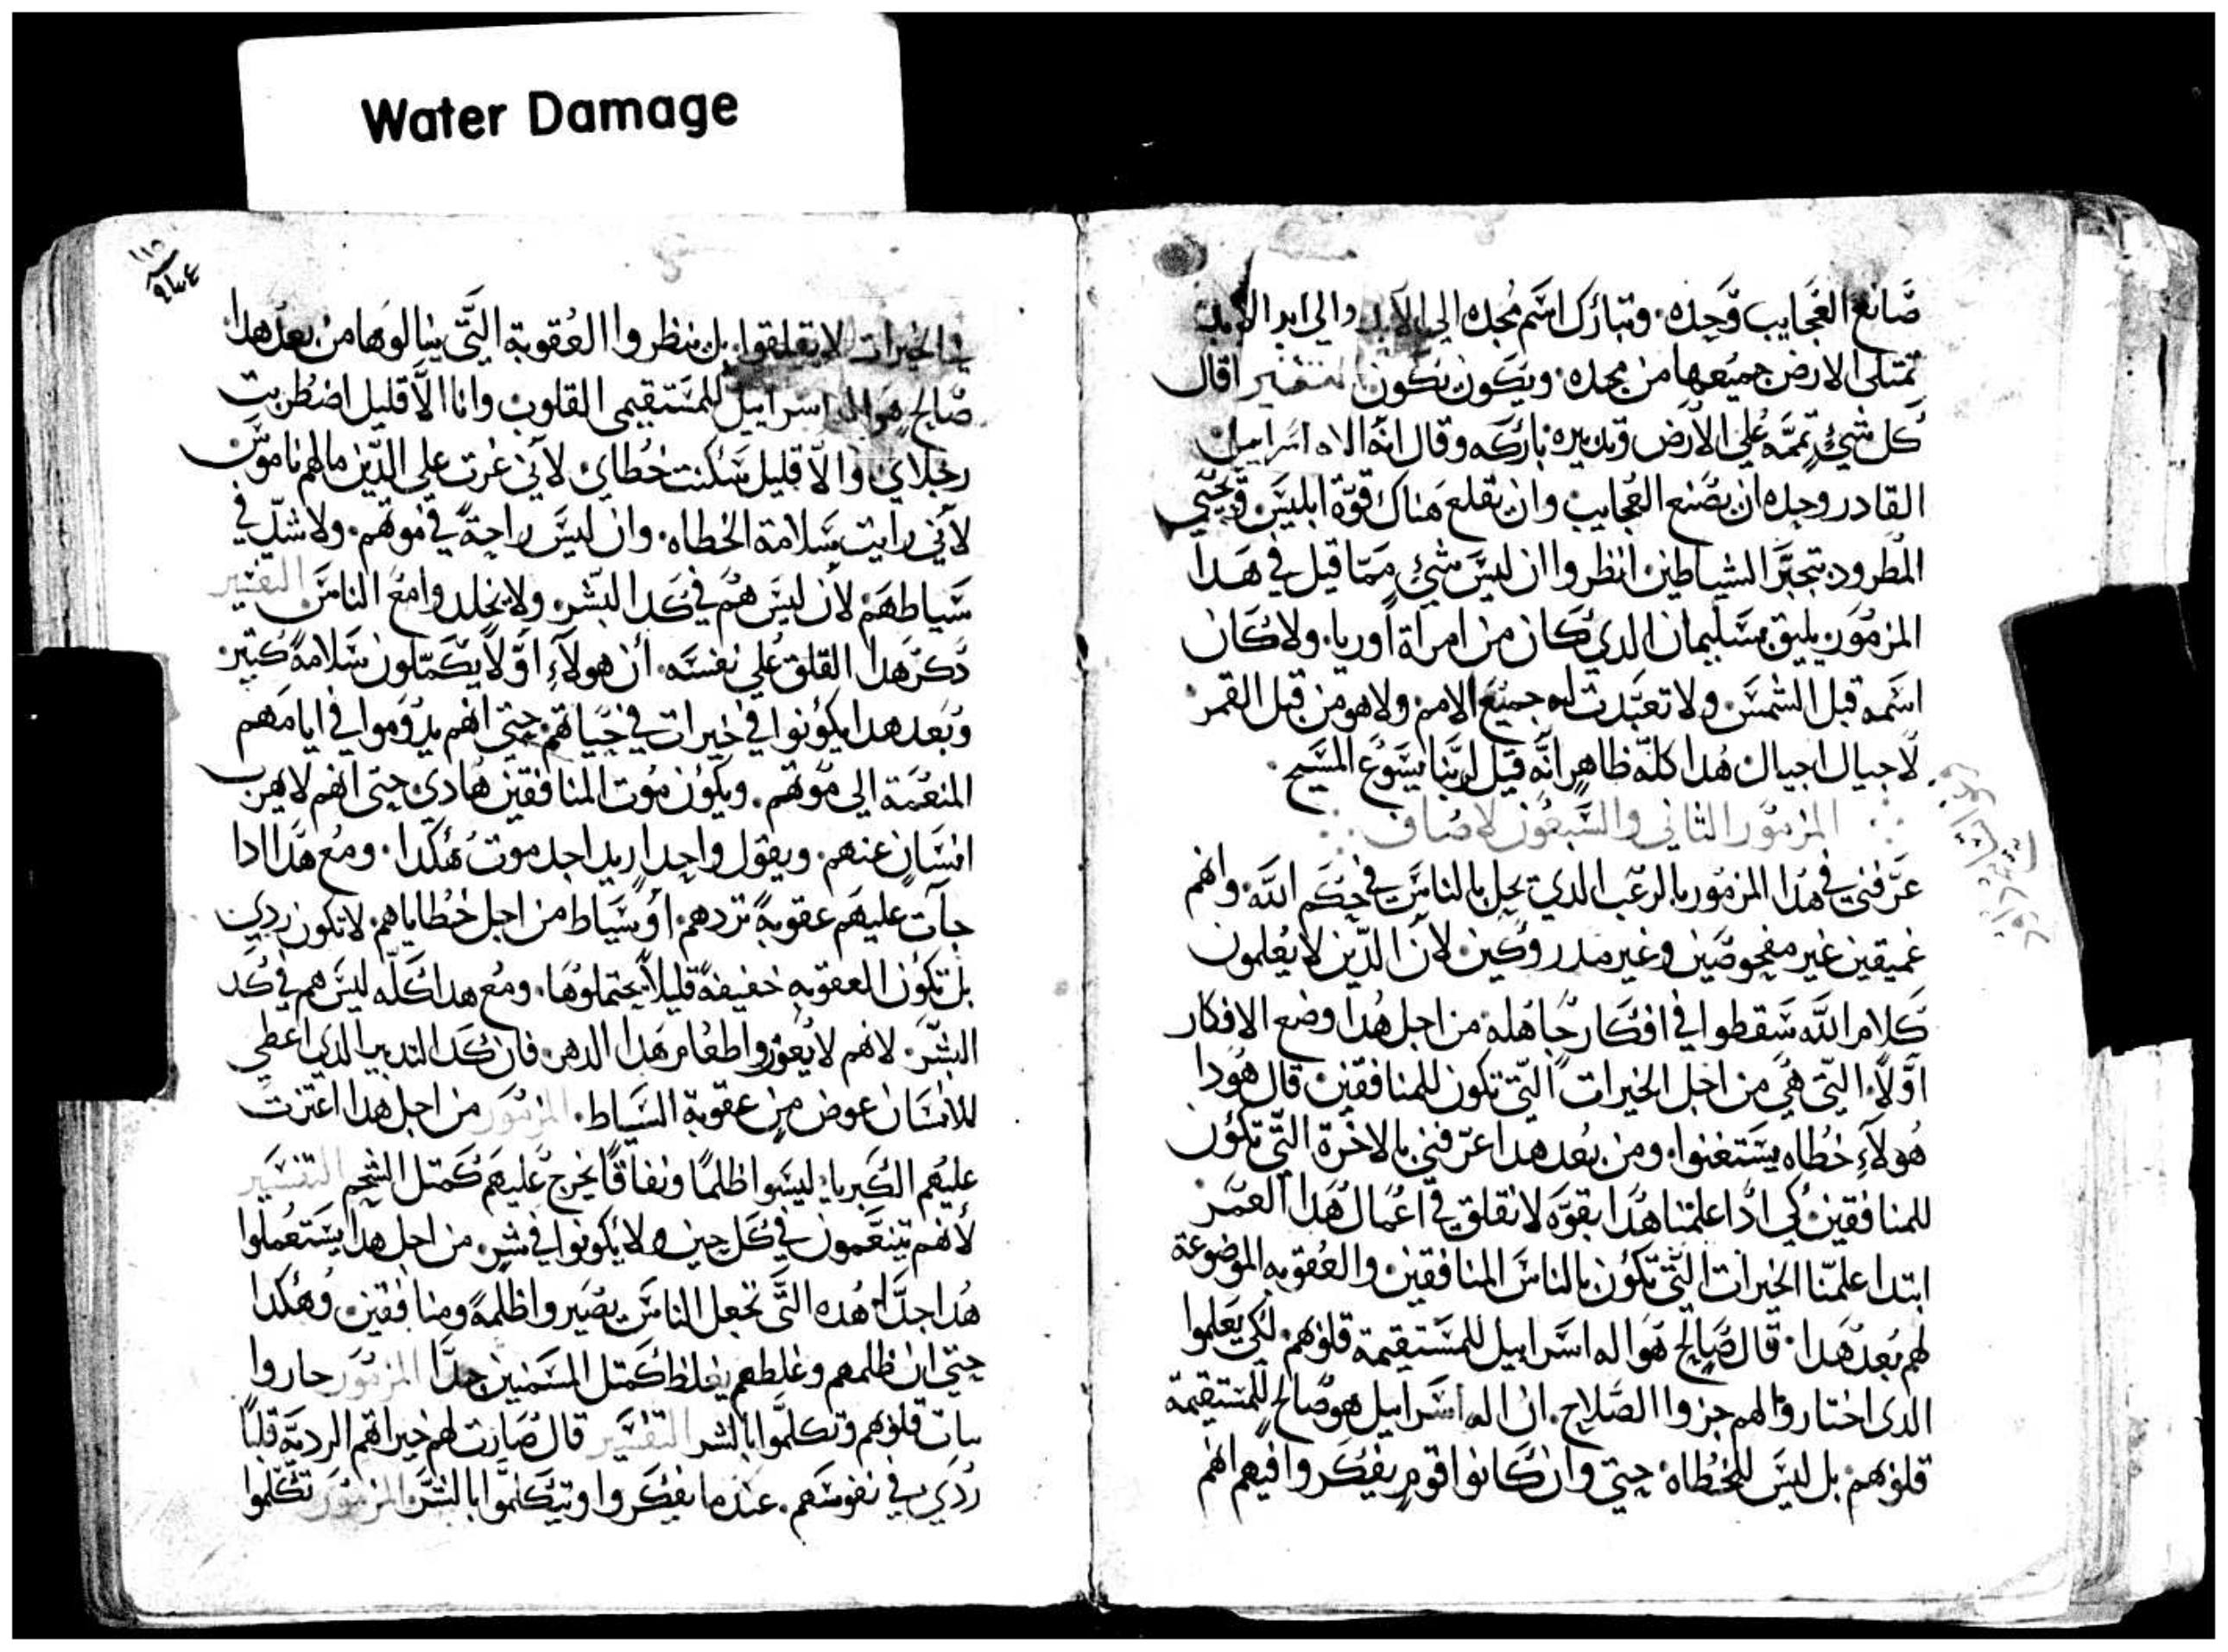 Water Damage
صانع العجايب وحده. وتبارك اسم مجده الي الابد والي ابد الابد
تمتلي الارض جميعها من مجده. ويكون يكون التفسير اقال
كل شيءٍ تممه علي الارض وتدبيره باركه وقال انه الاه اسراييل
القادر وحده ان يصنع العجايب وان يقلع هناك قوة ابليس
المطرود بتجبر الشياطين انظروا ان ليس شيءٍ مما قيل في هدا
المزمور يليق بسليمان الدي كان من امراة اوريا. ولا كان
اسمه قبل الشمس ولا تعبدت له جميع الامم ولا هو من قبل القمر
لاجيال اجيال هدا كله ظاهر انه قيل لربنا يسوع المسيح.
المزمور التاني والسبعون لاصاف
عرفني في هدا المزمور بالرعب الدي يحل بالناس في حكم الله وانهم
عميقين غير مفحوصين وغير مدروكين لان الدين لا يعلمون
كلام الله سقطوا في افكار جاهله من اجل هدا وضع الافكار
اولاً التي هي من اجل الخيرات التي تكون للمنافقين قال هودا
هولاءِ خطاه يستغنوا. ومن بعد هدا عرفني بالاخرة التي تكون
للمنافقين كي ادا علمنا هدا بقوه لا نقلق في اعمال هدا العمر
ابتدا علمنا الخيرات التي تكون بالناس المنافقين والعقوبه الموضوعة
لهم بعد هدا. قال صالح هو اله اسراييل للمستقيمة قلوبهم لكي يعلموا
الدي اختاروا لهم جزوا الصلاح. ان اله اسراييل هو صالح للمستقيمة
قلوبهم بل ليس للخطاه حتي وان كانوا قوم يفكروا فيهم انهم
١١٥
في الخيرات لا تقلقوا بل ينظروا العقوبة التي ينالوها من بعد هدا.
صالح هو اله اسراييل للمستقيمي القلوب وانا الا قليل اضطربت
رجلاي والا قليل سكنت خطاي لاني غرت علي الدين ما لهم ناموس
لاني رايت سلامة الخطاه. وان ليس راحة في موتهم. ولا شد في
سياطهم لان ليس هم في كد البشر ولا يجلدوا مع الناس التفسير
دكر هدا القلق علي نفسه. ان هولاءِ اولا يكملون سلامة كتير
وبعد هدا يكونوا في خيرات في حياتهم حتي انهم يدوموا في ايامهم
المنعمة الي موتهم. ويكون موت المنافقين هادي حتي انهم لا يهرب
انسان عنهم. ويقول واحد اريد اجد موت هكدا. ومع هدا ادا
جات عليهم عقوبة تردهم او سياط من اجل خطاياهم لا تكون ردي
بل تكون العقوبه خفيفة قليلاً يحتملوها. ومع هدا كله ليس هم في كد
البشر لانهم لا يعوزوا طعام هدا الدهر فان كد التدبير الدي اعطي
للانسان عوض من عقوبة السياط. المزمور من اجل هدا اعتزت
عليهم الكبريا: ليسوا ظلمًا ونفاقًا يخرج عليهم كمتل الشحم التفسير
لانهم يتنعمون في كل حين ولا يكونوا في شر من اجل هدا يستعملوا
هدا جدًا. هده التي تجعل الناس يصيروا ظلمة ومنافقين وهكدا
حتي ان ظلمهم وغلطهم يغلظ كمتل المسمنين جدًا المزمور حاروا
بيات قلوبهم وتكلموا بالشر التفسير قال صارت لهم خيراتهم الرديه قلبًا
ردي في نفوسهم. عند ما يفكروا ويتكلموا بالشر المزمور تكلموا